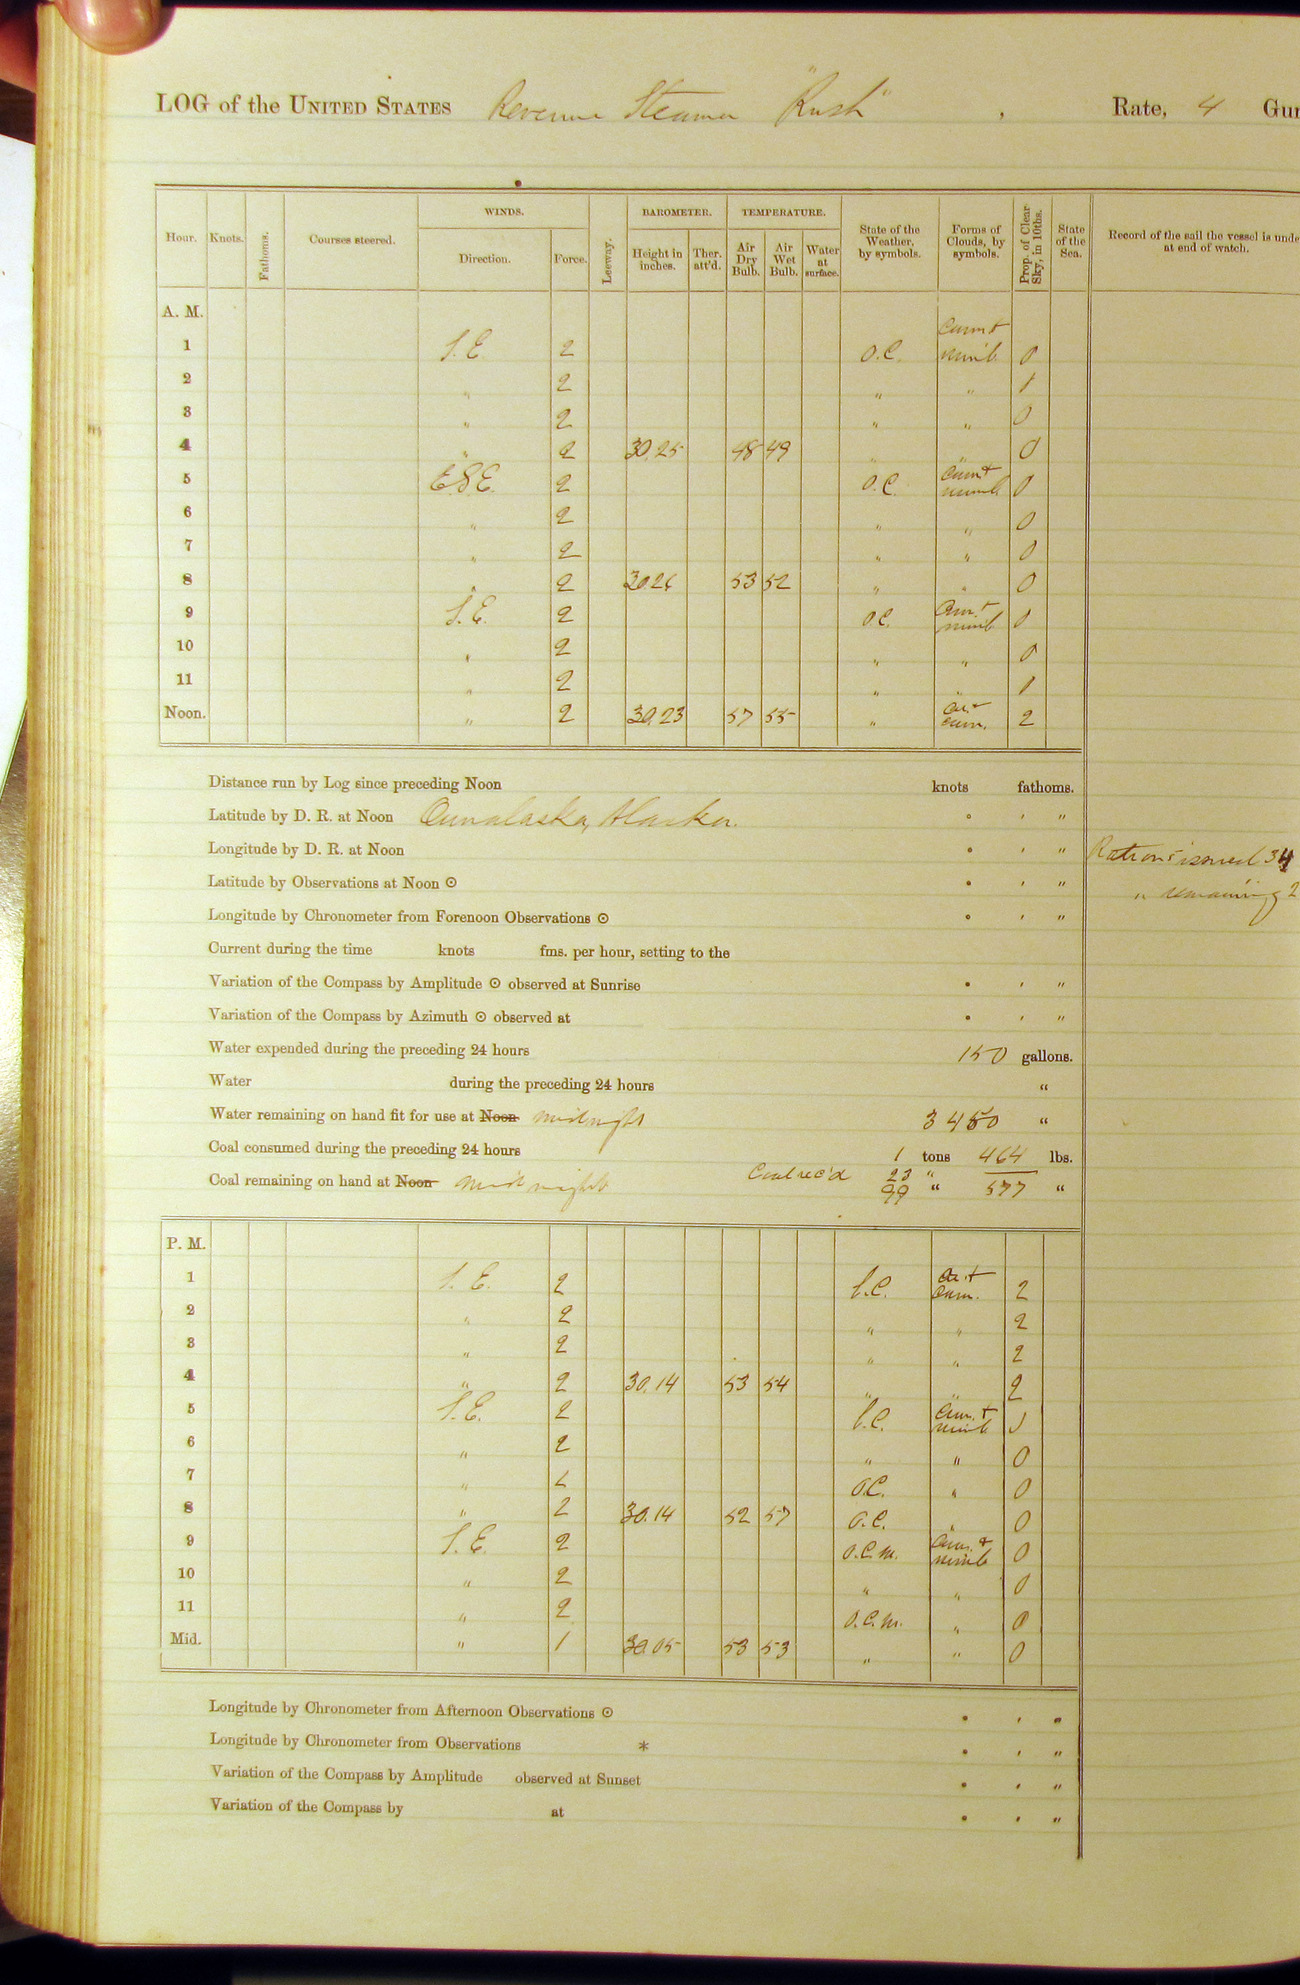 LOG of the UNITED STATES Revenue Steamer "Rush", Rate, 4 Gun
WINDS. BAROMETER. TEMPERATURE.
Hour. Knots. Fathoms. Courses steered. Direction. Force. Leeway. Height in inches. Ther. att'd. Air Dry Bulb. Air Wet Bulb. Water at surface. State of the Weather, by symbols. Forms of Clouds, by symbols. Prop. of Clear Sky, in 10ths. State of the Sea. Record of the sail the vessel is unde
at end of watch.
A. M.
1 S.E. 2 O.C. Cum + nimb 0
2 " 2 " " 1
3 " 2 " " 0
4 " 2 30.25 48 49 " " 0
5 E.S.E. 2 O.C. Cum + nimb 0
6 " 2 " " 0
7 " 2 " " 0
8 " 2 30 26 53 52 " " 0
9 S.E. 2 O.C. Cum. + nimb 0
10 " 2 " " 0
11 " 2 " " 1
Noon. " 2 30.23 57 55 " Cir. + cum. 2
Distance run by Log since preceding Noon knots fathoms.
Latitude by D. R. at Noon Ounalaska, Alaska. ° ' "
Longitude by D. R. at Noon ° ' " Rations issued 34
Latitude by Observations at Noon ⊙ ° ' " " remaining 2
Longitude by Chronometer from Forenoon Observations ⊙ ° ' "
Current during the time knots fms. per hour, setting to the
Variation of the Compass by Amplitude ⊙ observed at Sunrise ° ' "
Variation of the Compass by Azimuth ⊙ observed at ° ' "
Water expended during the preceding 24 hours 150 gallons.
Water during the preceding 24 hours "
Water remaining on hand fit for use at Noon midnight 3 450 "
Coal consumed during the preceding 24 hours 1 tons 464 lbs.
Coal rec'd 23 "
Coal remaining on hand at Noon midnight 99 " 577 "
P. M.
1 S. E. 2 b.C. Cir. + Cum. 2
2 " 2 " " 2
3 " 2 " " 2
4 " 2 30.14 53 54 " " 2
5 S.E. 2 b.C. Cum. + nimb 1
6 " 2 " " 0
7 " 2 O.C. " 0
8 " 2 30.14 52 57 O.C. " 0
9 S.E. 2 O.C.m. Cum. + nimb 0
10 " 2 " " 0
11 " 2 O.C.m. " 0
Mid. " 1 30.05 53 53 " " 0
Longitude by Chronometer from Afternoon Observations ⊙ ° ' "
Longitude by Chronometer from Observations * ° ' "
Variation of the Compass by Amplitude observed at Sunset ° ' "
Variation of the Compass by at ° ' "